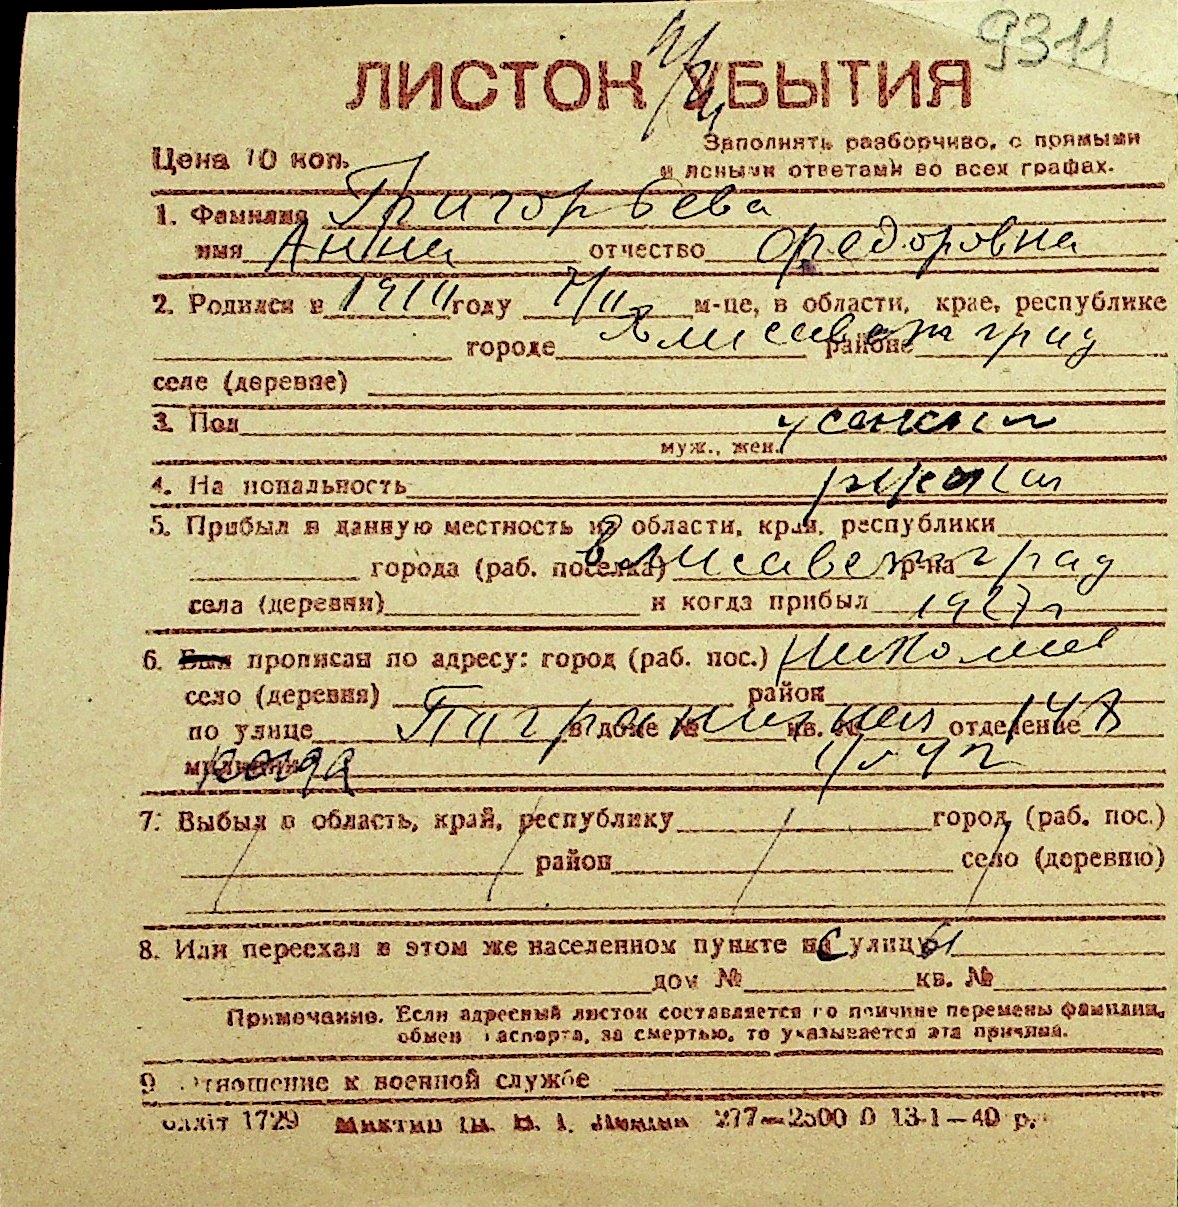 9311
ЛИСТОК УБЫТИЯ
Заполнять разборчиво, с прямыми
Цена 10 коп.
и ясными ответами во всех графах.
1. Фамилия Григорьева
имя Анна отчество Федоровна
2. Родился в году м-це, в области, крае, республике
городе Елисаветград районе
селе (деревне)
3. Пол женский
муж., жен.
4. На иональность русская
5. Прибыл в данную местность из области, края, республики
города (раб. поселка) Елисаветград р-на
села (деревни) и когда прибыл 1927 г
6. Был прописан по адресу: город (раб. пос.) Николаев
село (деревня) район
по улице Пограничная в доме № кв. № отделение 148
милиции
7. Выбыл в область, край, республику город (раб. пос.)
район село (деревню)
8. Или переехал в этом же населенном пункте на улицу
дом № кв. №
Примечание. Если адресный листок составляется по причине перемены фамилии,
обмен паспорта, за смертью, то указывается эта причина.
9 Отношение к военной службе
1729 277—2500 0 13-1—40 р.